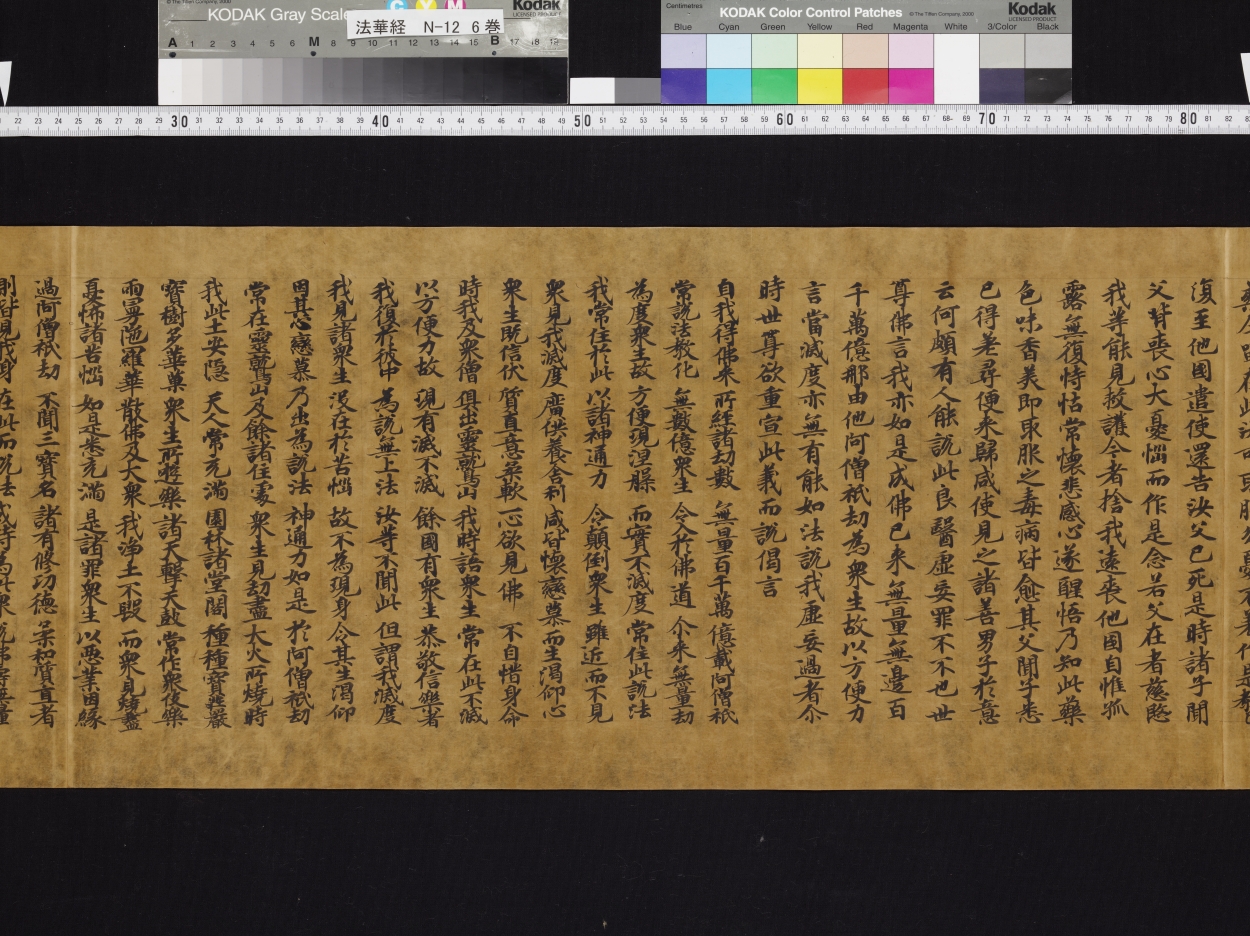 KODAK Gray Scale
© The Tiffen Company, 2000
Kodak
LICENSED PRODUCT
C Y M
法華経 N-12 6巻
A 1 2 3 4 5 6 M 8 9 10 11 12 13 14 15 B 17 18 19
Centimetres
KODAK Color Control Patches
© The Tiffen Company, 2000
Kodak
LICENSED PRODUCT
Blue Cyan Green Yellow Red Magenta White 3/Color Black
22 23 24 25 26 27 28 29 30 31 32 33 34 35 36 37 38 39 40 41 42 43 44 45 46 47 48 49 50 51 52 53 54 55 56 57 58 59 60 61 62 63 64 65 66 67 68 69 70 71 72 73 74 75 76 77 78 79 80 81 82
復至他國遣使還告汝父已死是時諸子聞
父背喪心大憂惱而作是念若父在者慈愍
我等能見救護今者捨我遠喪他國自惟孤
露無復恃怙常懷悲感心遂醒悟乃知此藥
色味香美即取服之毒病皆愈其父聞子悉
已得差尋便來歸咸使見之諸善男子於意
云何頗有人能說此良醫虛妄罪不不也世
尊佛言我亦如是成佛已來無量無邊百
千萬億那由他阿僧祇劫為衆生故以方便力
言當滅度亦無有能如法說我虛妄過者尒
時世尊欲重宣此義而說偈言
自我得佛來 所經諸劫數 無量百千萬 億載阿僧祇
常說法教化 無數億衆生 令入於佛道 尒來無量劫
為度衆生故 方便現涅槃 而實不滅度 常住此說法
我常住於此 以諸神通力 令顛倒衆生 雖近而不見
衆見我滅度 廣供養舍利 咸皆懷戀慕 而生渴仰心
衆生既信伏 質直意柔軟 一心欲見佛 不自惜身命
時我及衆僧 俱出靈鷲山 我時語衆生 常在此不滅
以方便力故 現有滅不滅 餘國有衆生 恭敬信樂者
我復於彼中 為說無上法 汝等不聞此 但謂我滅度
我見諸衆生 沒在於苦惱 故不為現身 令其生渴仰
因其心戀慕 乃出為說法 神通力如是 於阿僧祇劫
常在靈鷲山 及餘諸住處 衆生見劫盡 大火所燒時
我此土安隱 天人常充滿 園林諸堂閣 種種寶莊嚴
寶樹多華菓 衆生所遊樂 諸天擊天鼓 常作衆伎樂
雨曼陁羅華 散佛及大衆 我淨土不毀 而衆見燒盡
憂怖諸苦惱 如是悉充滿 是諸罪衆生 以惡業因緣
過阿僧祇劫 不聞三寶名 諸有修功德 柔和質直者
則皆見我身 在此而說法 或時為此衆 說佛壽無量